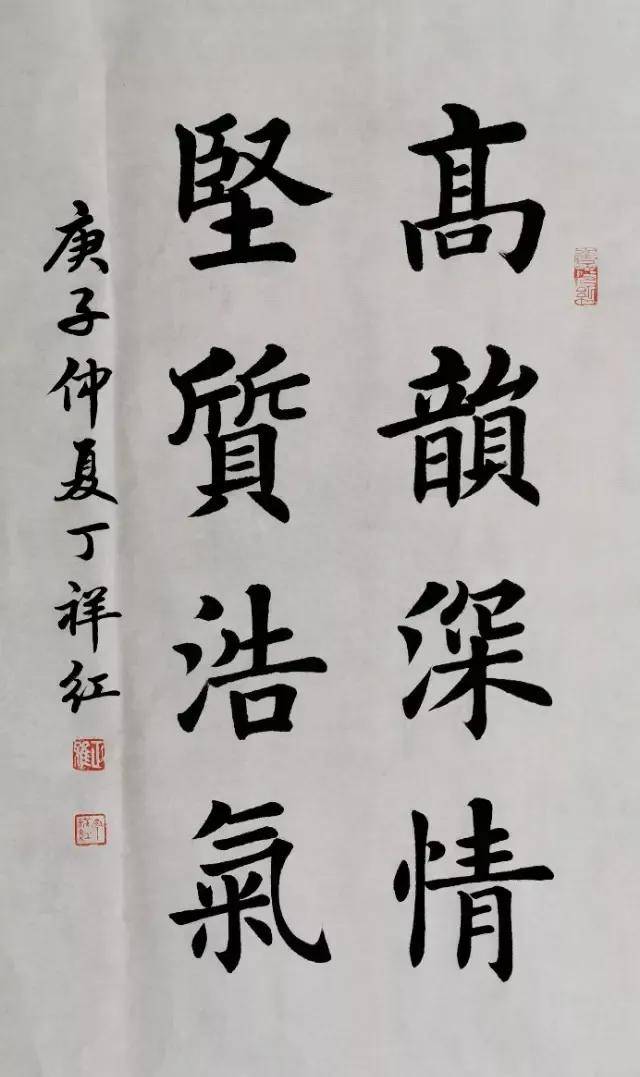 髙韻深情
堅質浩氣
庚子仲夏丁祥红